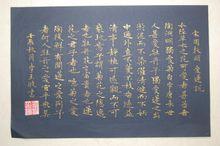 愛蓮說
水陸草木之花可愛者甚蕃晉
陶淵明獨愛菊自李唐來世
人甚愛牡丹予獨愛蓮之出
淤泥而不染濯清漣而不妖
中通外直不蔓不枝香遠益
清亭亭淨植可遠觀而不可
褻玩焉予謂菊花之隱逸
者也牡丹花之富貴者也蓮花
之君子者也噫菊之愛
陶後鮮有聞蓮之愛同予
者何人牡丹之愛宜乎眾矣
秋月